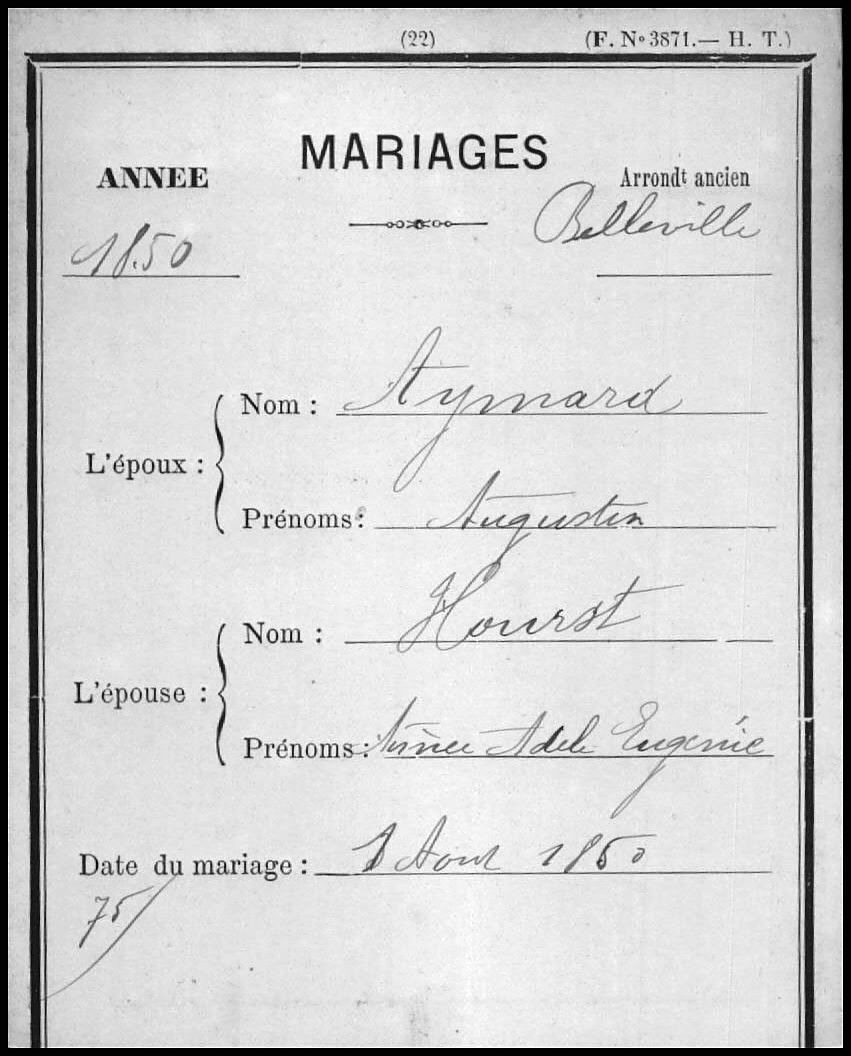 (22) (F. Nº 3871.— H. T.)
MARIAGES
ANNEE Arrondt ancien
1850 Belleville
L'époux :
Nom : Aymard
Prénoms : Augustin
L'épouse :
Nom : Hourst
Prénoms : Adele Eugenie
Date du mariage : Aout 1850
75